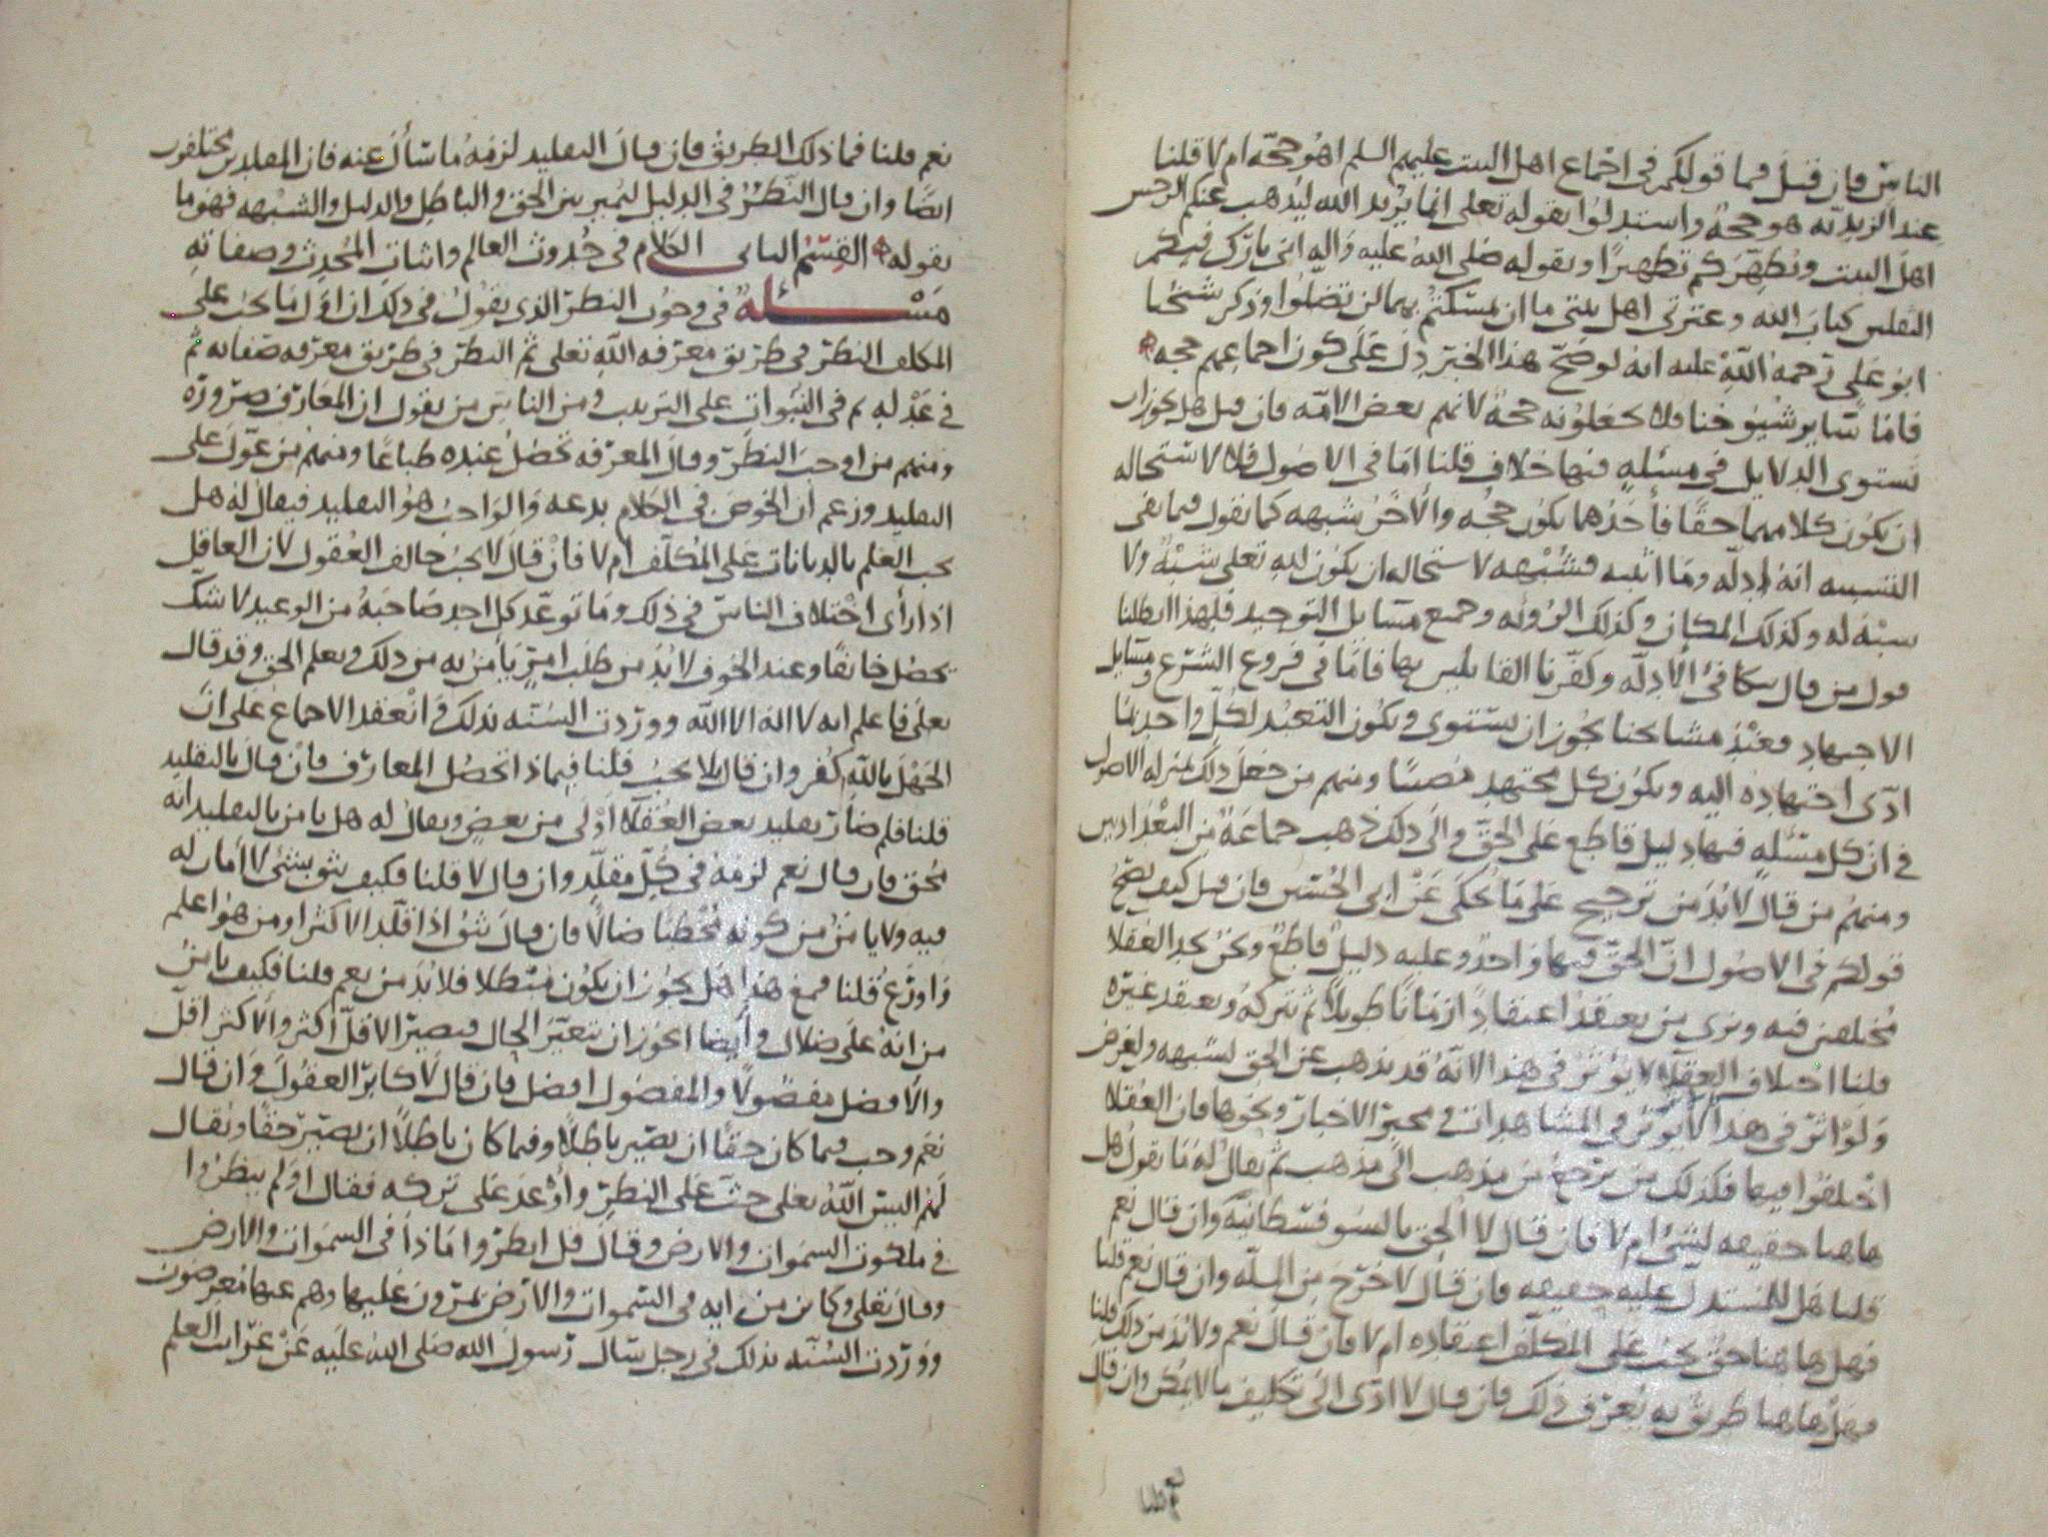 الناس فان قيل فما قولكم في اجماع اهل البيت عليهم السلم اهو حجة ام لا قلنا
عند الزيدية هو حجة واستدلوا بقوله تعلى انما يريد الله ليذهب عنكم الرجس
اهل البيت ويطهركم تطهيرا وبقوله صلى الله عليه واله اني تارك فيكم
الثقلين كتاب الله وعترتي اهل بيتي ما ان تمسكتم بهما لن تضلوا وذكر شيخنا
ابو علي رحمة الله عليه انه لو صح هذا الخبر دل على كون اجماعهم حجه
فاما ساير شيوخنا فلا يجعلونه حجة لانهم بعض الامه فان قيل هل يجوز ان
تستوى الدلايل في مسئله فيها خلاف قلنا اما في الاصول فلا لاستحاله
ان يكون كلامهما حقا فأحدهما يكون حجه والاخر شبهه كما نقول فيما نفى
التشبيه انه ادله وما اثبته فشبهه لاستحاله ان يكون لله تعلى شبه ولا
شبه له وكذلك المكان وكذلك الرؤيه وجميع مسايل التوحيد فلهذا ابطلنا
قول من قال بتكافئ الادله وكفرنا القايلين بها فاما في فروع الشرع ومسايل
الاجتهاد فعند مشايخنا يجوز ان يستوى ويكون التعبد لكل واحد بما
ادى اجتهاده اليه ويكون كل مجتهد مصيبا ومنهم من جعل ذلك بمنزله الاصول
في ان كل مسئله فيها دليل قاطع على الحق والى ذلك ذهب جماعة من البغداديين
ومنهم من قال لا بد من ترجيح على ما يحكى عن ابي الحسين فان قيل كيف يصح
قولكم في الاصول ان الحق فيها واحد وعليه دليل قاطع ونحن نجد العقلا
مختلفين فيه ونرى من يعتقد اعتقادا زمانا طويلا ثم يتركه ويعتقد غيره
قلنا اختلاف العقلا لا يؤثر في هذا لانه قد يذهب عن الحق لشبهه ولغرض
ولو اثر في هذا لأثر في المشاهدات و مخبر الاخبار ونحوها فان العقلا
اختلفوا فيها فكذلك من يرجع من مذهب الى مذهب ثم يقال له ما تقول هل
هاهنا حقيقه لشئ ام لا فان قال لا الحق بالسوفسطانية وان قال نعم
قلنا هل للمستدل عليه حقيقه فان قال لا خرج من المله وان قال نعم قلنا
فهل هاهنا حق يجب على المكلف اعتقاده ام لا فان قال نعم ولا بد من ذلك قلنا
فهل هاهنا طريق به يعرف ذلك فان قال لا ادى الى تكليف ما لا يمكن وان قال
نعم قلنا
نعم قلنا فما ذلك الطريق فان قال التقليد لزمه ما سأل عنه فان المقلدين مختلفون
ايضا وان قال النظر في الدليل ليميز بين الحق والباطل والدليل والشبهه فهو ما
نقوله القسم الثاني الكلام في حدوث العالم واثبات المحدث وصفاته
مسئلة في وجوب النظر الذي نقول في ذلك ان اول ما يجب على
المكلف النظر في طريق معرفه الله تعلى ثم النظر في طريق معرفه صفاته ثم
في عدله ثم في النبوات على الترتيب ومن الناس من يقول ان المعارف ضرورة
ومنهم من اوجب النظر وقال المعرفه تحصل عنده طباعا ومنهم من عول على
التقليد وزعم ان الخوض في الكلام بدعه والواجب هو التقليد فيقال له هل
يجب العلم بالديانات على المكلف ام لا فان قال لا يجب خالف العقول لان العاقل
اذا رأى اختلاف الناس في ذلك وما توعد كل احد صاحبه من الوعيد لا شك
يحصل خايفا وعند الخوف لا بد من طلب امر يأمن به من ذلك ويعلم الحق وقد قال
تعلى فاعلم انه لا اله الا الله ووردت السنه بذلك وانعقد الاجماع على ان
الجهل بالله كفر وان قال بلا يجب قلنا فبماذا تحصل المعارف فان قال بالتقليد
قلنا فلم صار تقليد بعض العقلا اولى من بعض ويقال له هل يامن بالتقليد انه
محق فان قال نعم لزمه في كل مقلد وان قال لا قلنا فكيف يثق بشئ لا امان له
فيه ولا يامن من كونه مخطئا ضالا فان قال يثق اذا قلد الاكثر او من هو اعلم
واورع قلنا فمع هذا هل يجوز ان يكون مبطلا فلا بد من نعم قلنا فكيف يامن
من انه على ضلال وأيضا ايجوز ان يتغير الحال فيصير الاقل اكثر والاكثر اقل
والافضل مفضولا والمفضول افضل فان قال لا كابر العقول وان قال
نعم وجب فيما كان حقا ان يصير باطلا وفيما كان باطلا ان يصير حقا ويقال
لهم اليس الله تعلى حث على النظر وأوعد على تركه فقال اولم ينظروا
في ملكوت السموات والارض وقال قل انظروا ماذا في السموات والارض
وقال تعلى وكاين من ايه في السموات والارض يمرون عليها وهم عنها معرضون
ووردت السنه بذلك في رجل سال رسول الله صلى الله عليه عن غرائب العلم